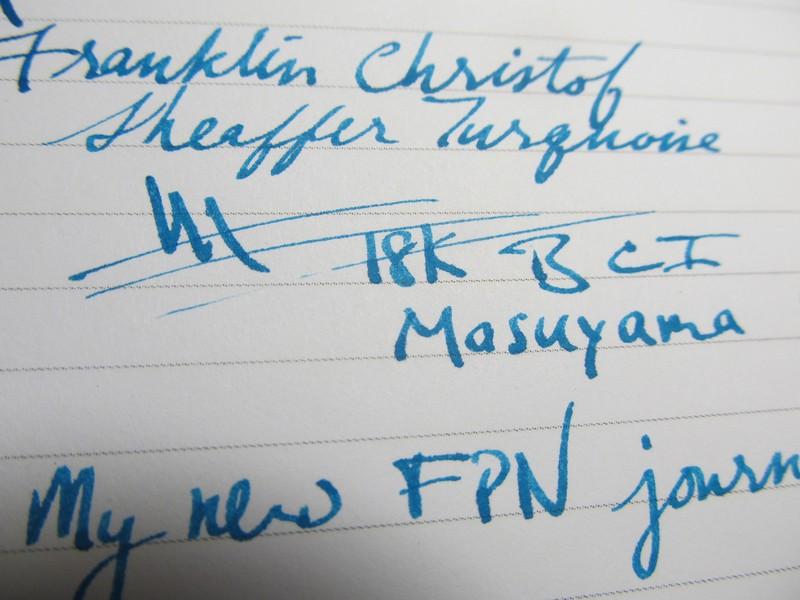 Franklin Christof
Sheaffer Turquoise
18K B CI
Masuyama
My new FPN journ